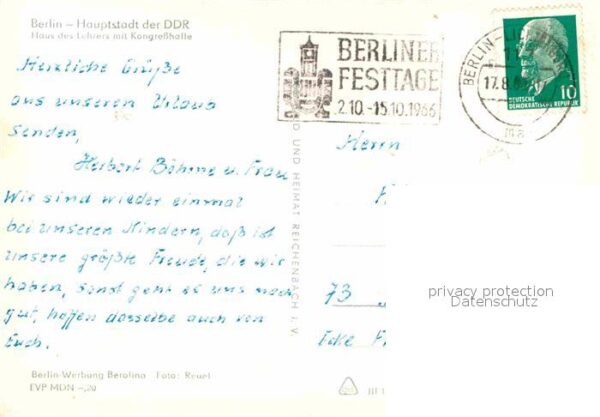 Berlin – Hauptstadt der DDR
Haus des Lehrers mit Kongreßhalle
Herzliche Grüße
aus unserem Urlaub
senden,
Herbert Böhme u. Frau
Wir sind wieder einmal
bei unseren Kindern, daß ist
unsere größte Freude, die wir
haben, sonst geht es uns noch
gut, hoffen dasselbe auch von
Euch.
Berlin-Werbung Berolina Foto: Reuel
EVP MDN –,20
D UND HEIMAT REICHENBACH I. V.
BERLINER
FESTTAGE
2.10.-15.10.1966
BERLIN-
17.8.
10
DEUTSCHE
DEMOKRATISCHE REPUBLIK
Herrn
73
privacy protection
Datenschutz
III